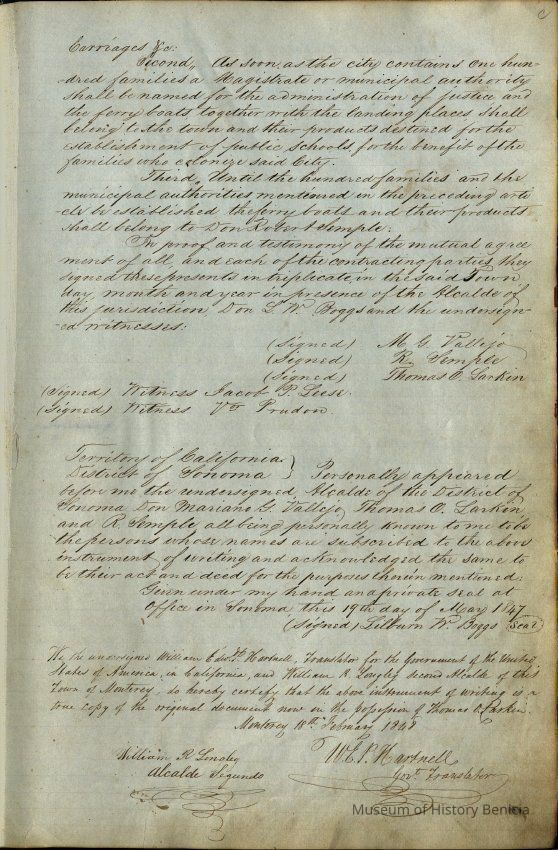 C
Carriages &c:
Second, As soon as the city contains One hun-
-dred families a Magistrate or municipal authority
shall be named for the administration of justice and
the ferry boats together with the landing places shall
belong to the town and their products destened for the
establishment of public Schools for the benefit of the
families who colonize said City.
Third, Until the hundred families and the
municipal authorities mentioned in the preceding arti-
-cle be established the ferry boats and their products
shall belong to Don Robert Semple.
In proof and testimony of the mutual agree
ment of all and each of the contracting parties, they
signed these presents in triplicate, in the said Town
day, month and year in presence of the Alcalde of
this jurisdiction, Don L. W. Boggs and the undersign-
-ed witnesses:
(Signed) M. G. Vallejo
(Signed) R. Semple
(Signed) Thomas O. Larkin
(Signed) Witness Jacob P. Leese.
(Signed) Witness Vr Prudon.
Territory of California
District of Sonoma } Personally appeared
before me the undersigned, Alcalde of the District of
Sonoma Don Mariano G. Vallejo, Thomas O. Larkin,
and R. Semple all being personally known to me to be
the persons whose names are subscribed to the above
instrument of writing and acknowledged the same to
be their act and deed for the purposes therein mentioned.
Given under my hand and private seal at
Office in Sonoma this 19th day of May 1847
(Signed) Lilburn W. Boggs Seal
We the undersigned William Edwd. P. Hartnell, Translator for the Government of the United
States of America, in California, and William R. Longley second Alcalde of this
Town of Monterey, do hereby certify that the above instrument of writing is a
true copy of the original document now in the possession of Thomas O. Larkin.
Monterey 18th February 1848
William R Longley
Alcalde Segundo
W. E. P. Hartnell
Govt. Translator
Museum of History Benicia